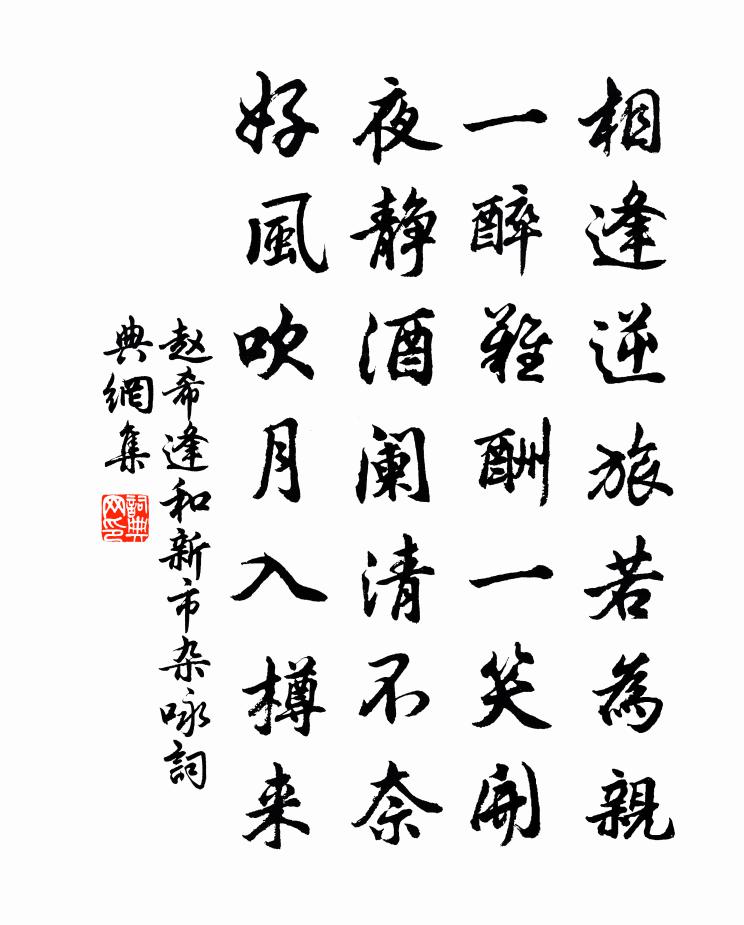 相逢逆旅若為親
一醉難酬一笑開
夜靜酒阑清不奈
好風吹月入樽来
赵希逢和新市杂咏詞
典網集
詞典网印